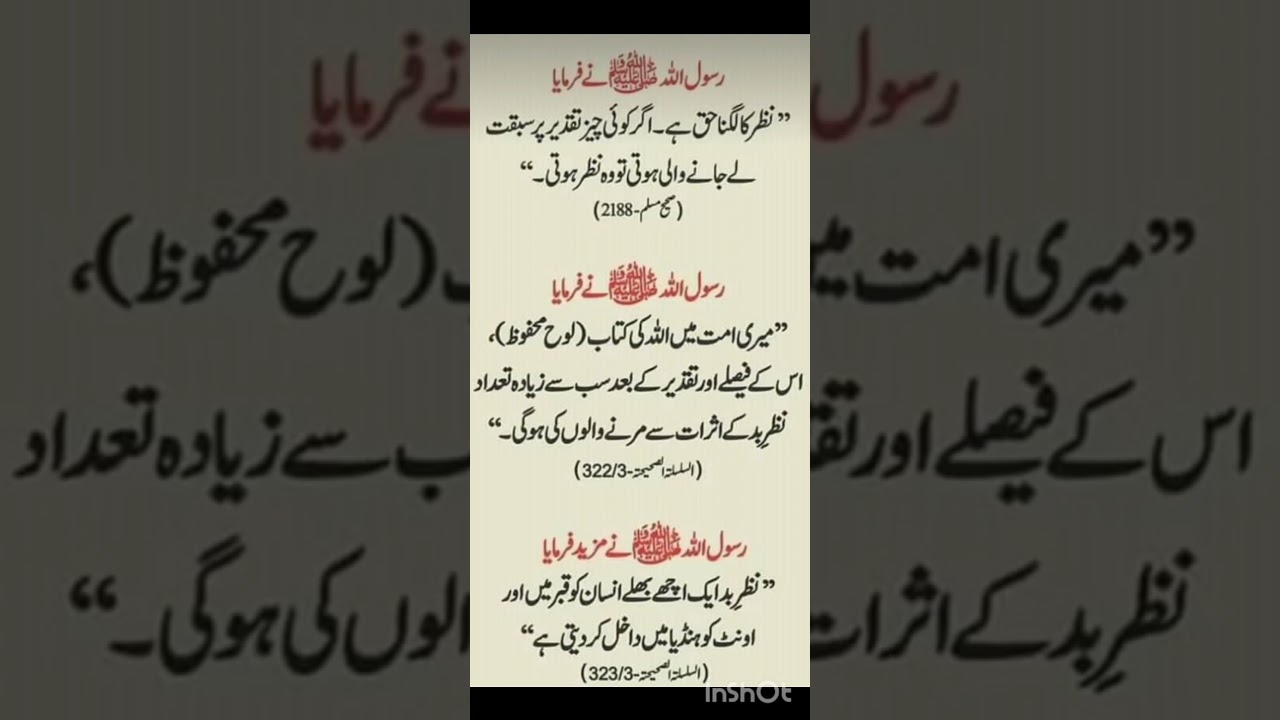 رسول اللہ ﷺ نے فرمایا
”نظر کا لگنا حق ہے۔ اگر کوئی چیز تقدیر پر سبقت
لے جانے والی ہوتی تو وہ نظر ہوتی۔“
(صحیح مسلم-2188)
رسول اللہ ﷺ نے فرمایا
”میری امت میں اللہ کی کتاب (لوح محفوظ)،
اس کے فیصلے اور تقدیر کے بعد سب سے زیادہ تعداد
نظرِ بد کے اثرات سے مرنے والوں کی ہوگی۔“
(السلسلۃ الصحیحۃ-322/3)
رسول اللہ ﷺ نے مزید فرمایا
”نظرِ بد ایک اچھے بھلے انسان کو قبر میں اور
اونٹ کو ہنڈیا میں داخل کر دیتی ہے“
(السلسلۃ الصحیحۃ-323/3)
InShOt